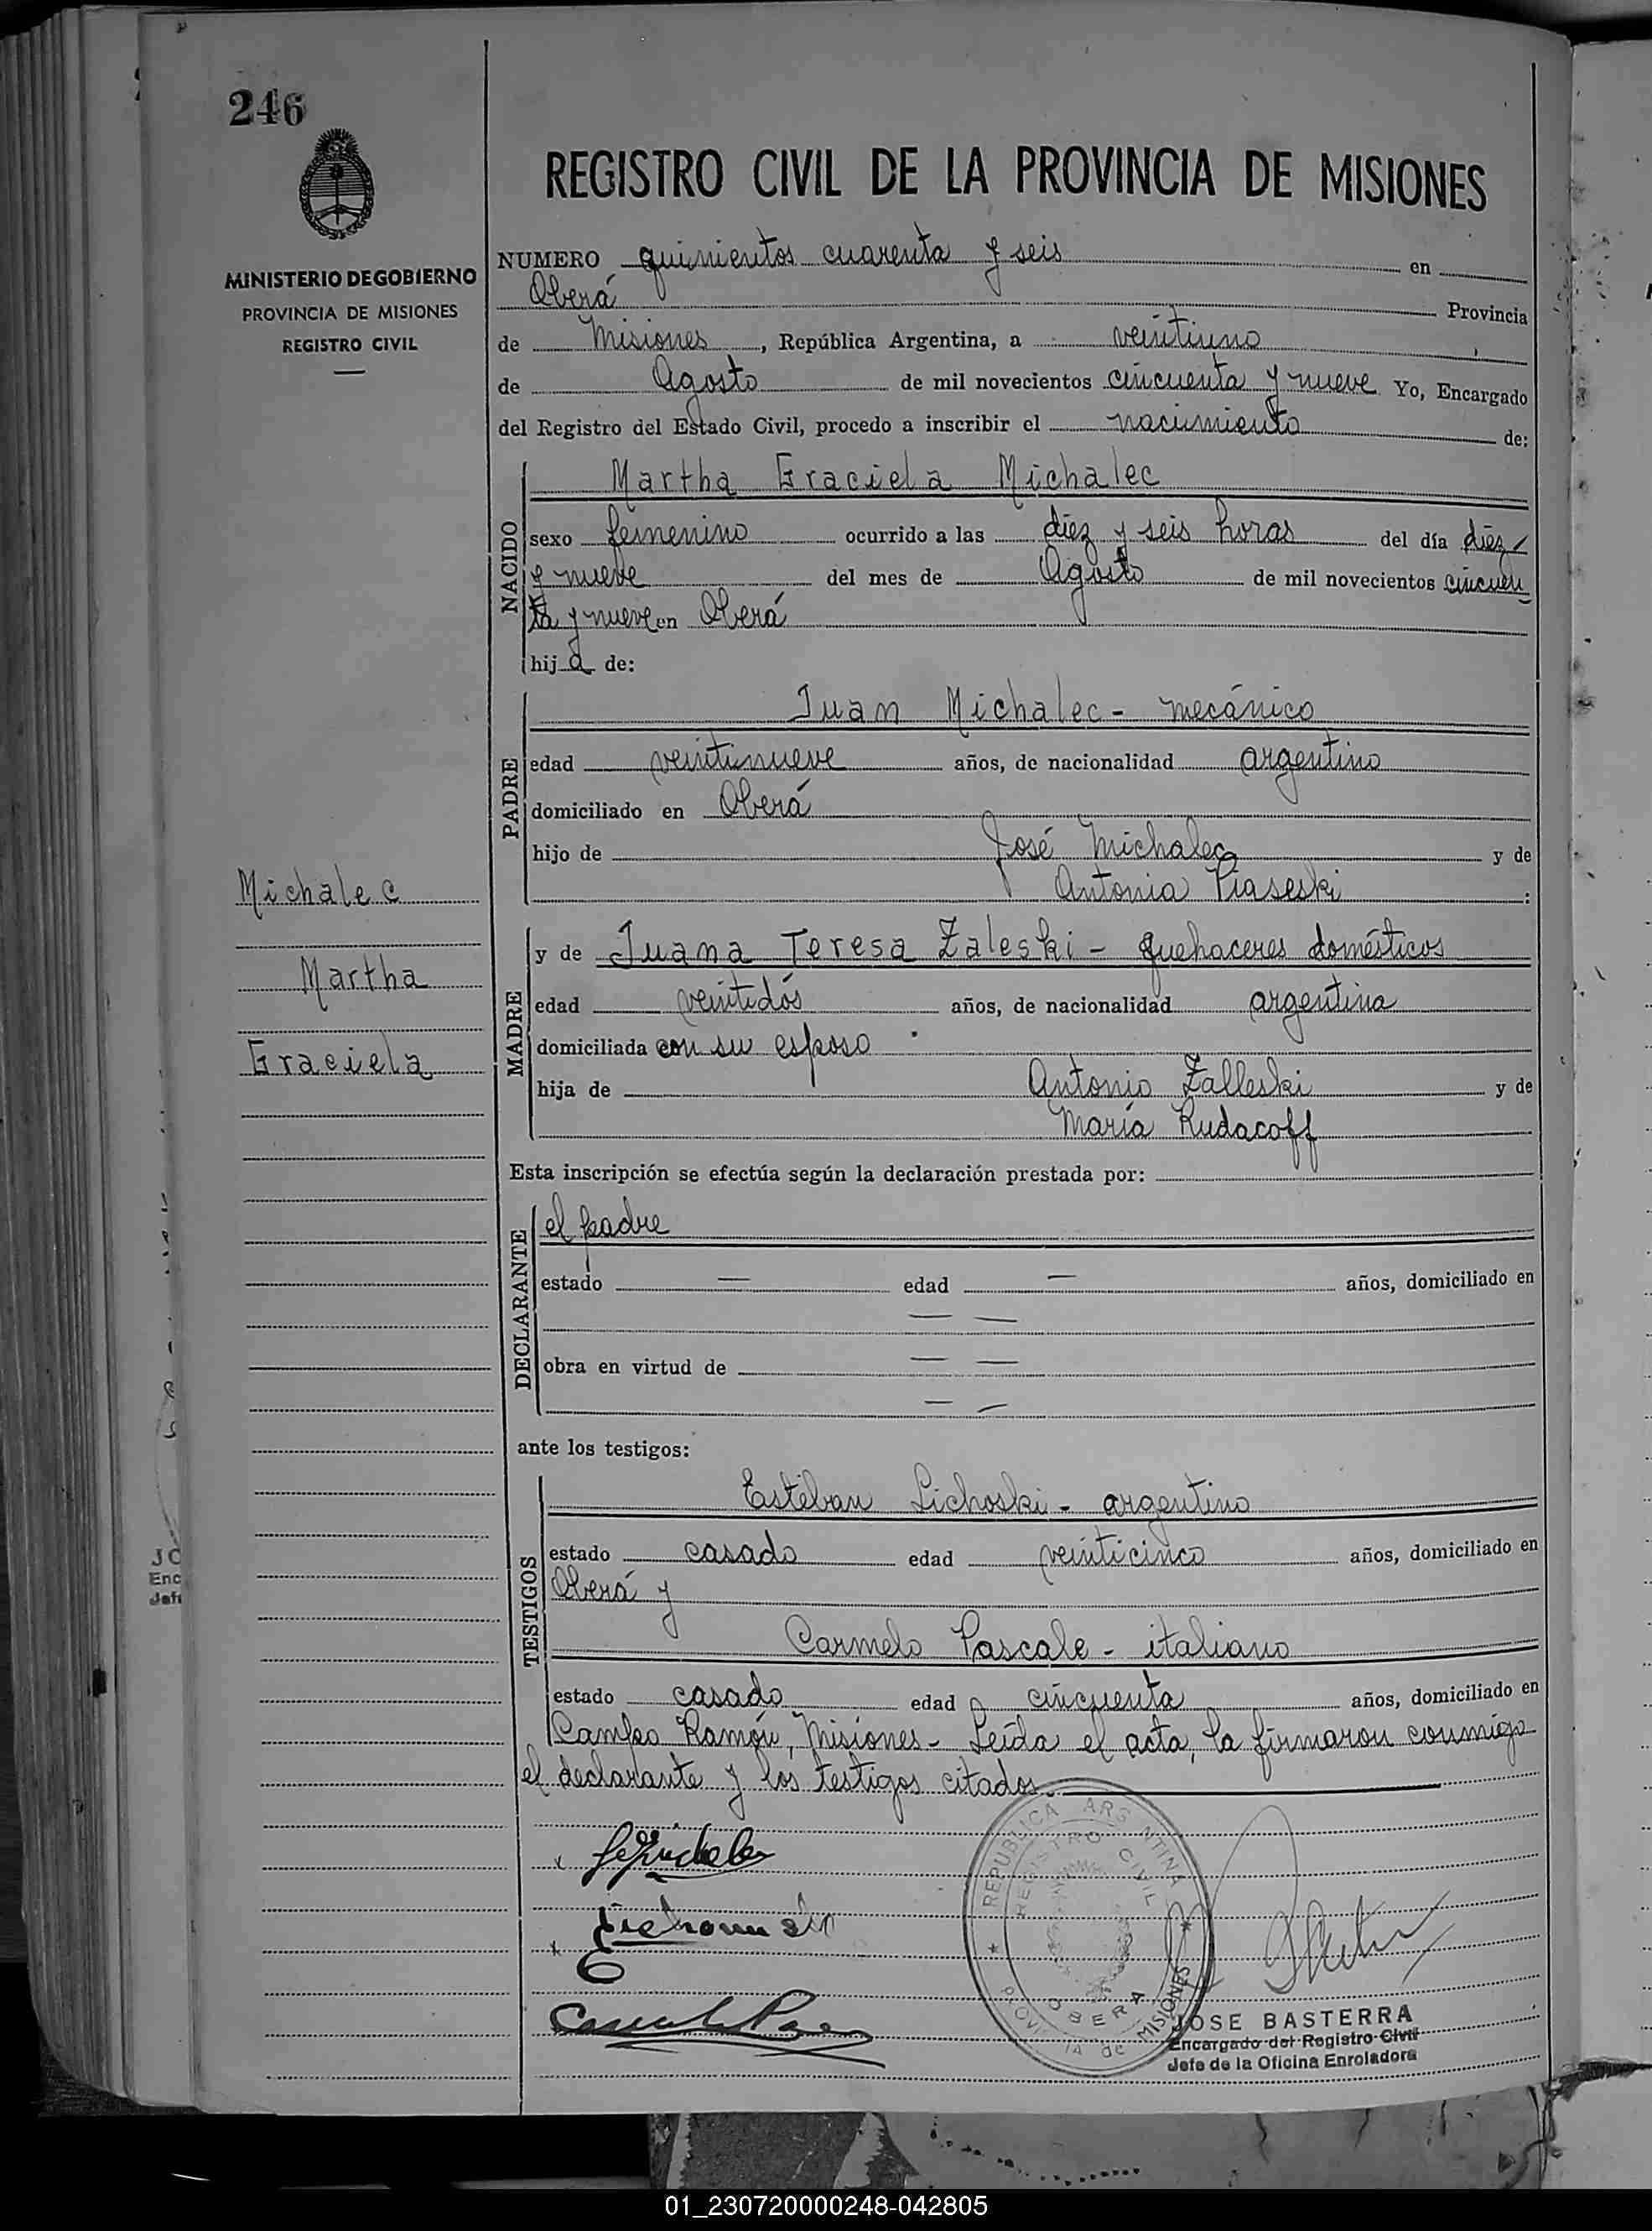 246
MINISTERIO DE GOBIERNO
PROVINCIA DE MISIONES
REGISTRO CIVIL
REGISTRO CIVIL DE LA PROVINCIA DE MISIONES
NUMERO quinientos cuarenta y seis en
Oberá Provincia
de Misiones, República Argentina, a veintiuno
de Agosto de mil novecientos cincuenta y nueve Yo, Encargado
del Registro del Estado Civil, procedo a inscribir el nacimiento de:
NACIDO
Martha Graciela Michalec
sexo femenino ocurrido a las diez y seis horas del día diez
y nueve del mes de Agosto de mil novecientos cincuen
ta y nueve en Oberá
hija de:
PADRE
Juan Michalec - mecánico
edad veintinueve años, de nacionalidad argentino
domiciliado en Oberá
hijo de José Michalec y de
Antonia Piaseski :
Michalec
Martha
Graciela
MADRE
y de Juana Teresa Zaleski - quehaceres domésticos
edad veintidós años, de nacionalidad argentina
domiciliada con su esposo
hija de Antonio Zalleski y de
María Rudacoff
Esta inscripción se efectúa según la declaración prestada por:
DECLARANTE
el padre
estado — edad — años, domiciliado en
— —
obra en virtud de — —
— —
ante los testigos:
TESTIGOS
Esteban Lichoski - argentino
estado casado edad veinticinco años, domiciliado en
Oberá y
Carmelo Pascale - italiano
estado casado edad cincuenta años, domiciliado en
Campo Ramón, Misiones - Leída el acta, la firmaron conmigo
el declarante y los testigos citados.
REPUBLICA ARGENTINA
REGISTRO CIVIL
OBERA
PROVINCIA de MISIONES
JOSE BASTERRA
Encargado del Registro Civil
Jefe de la Oficina Enroladora
JO
Enc
Jefe
01_230720000248-042805